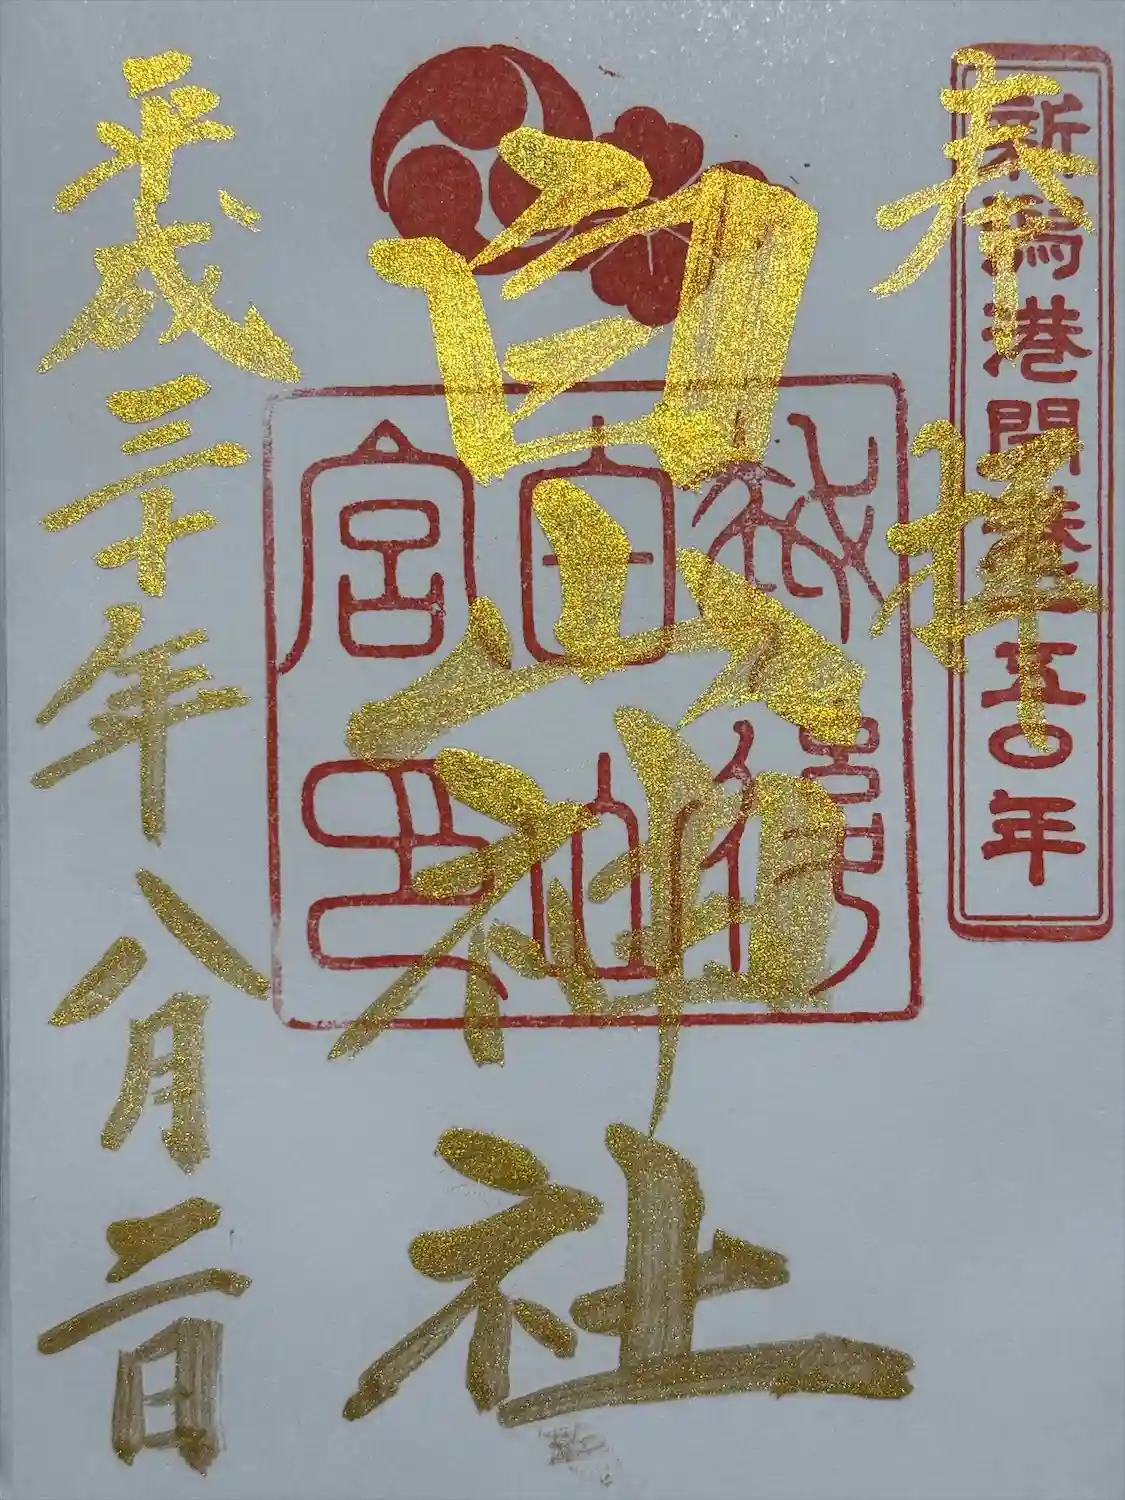 新潟港開港一五〇年
奉拝
白山神社
越後
白山
宮印
平成三十年八月二日